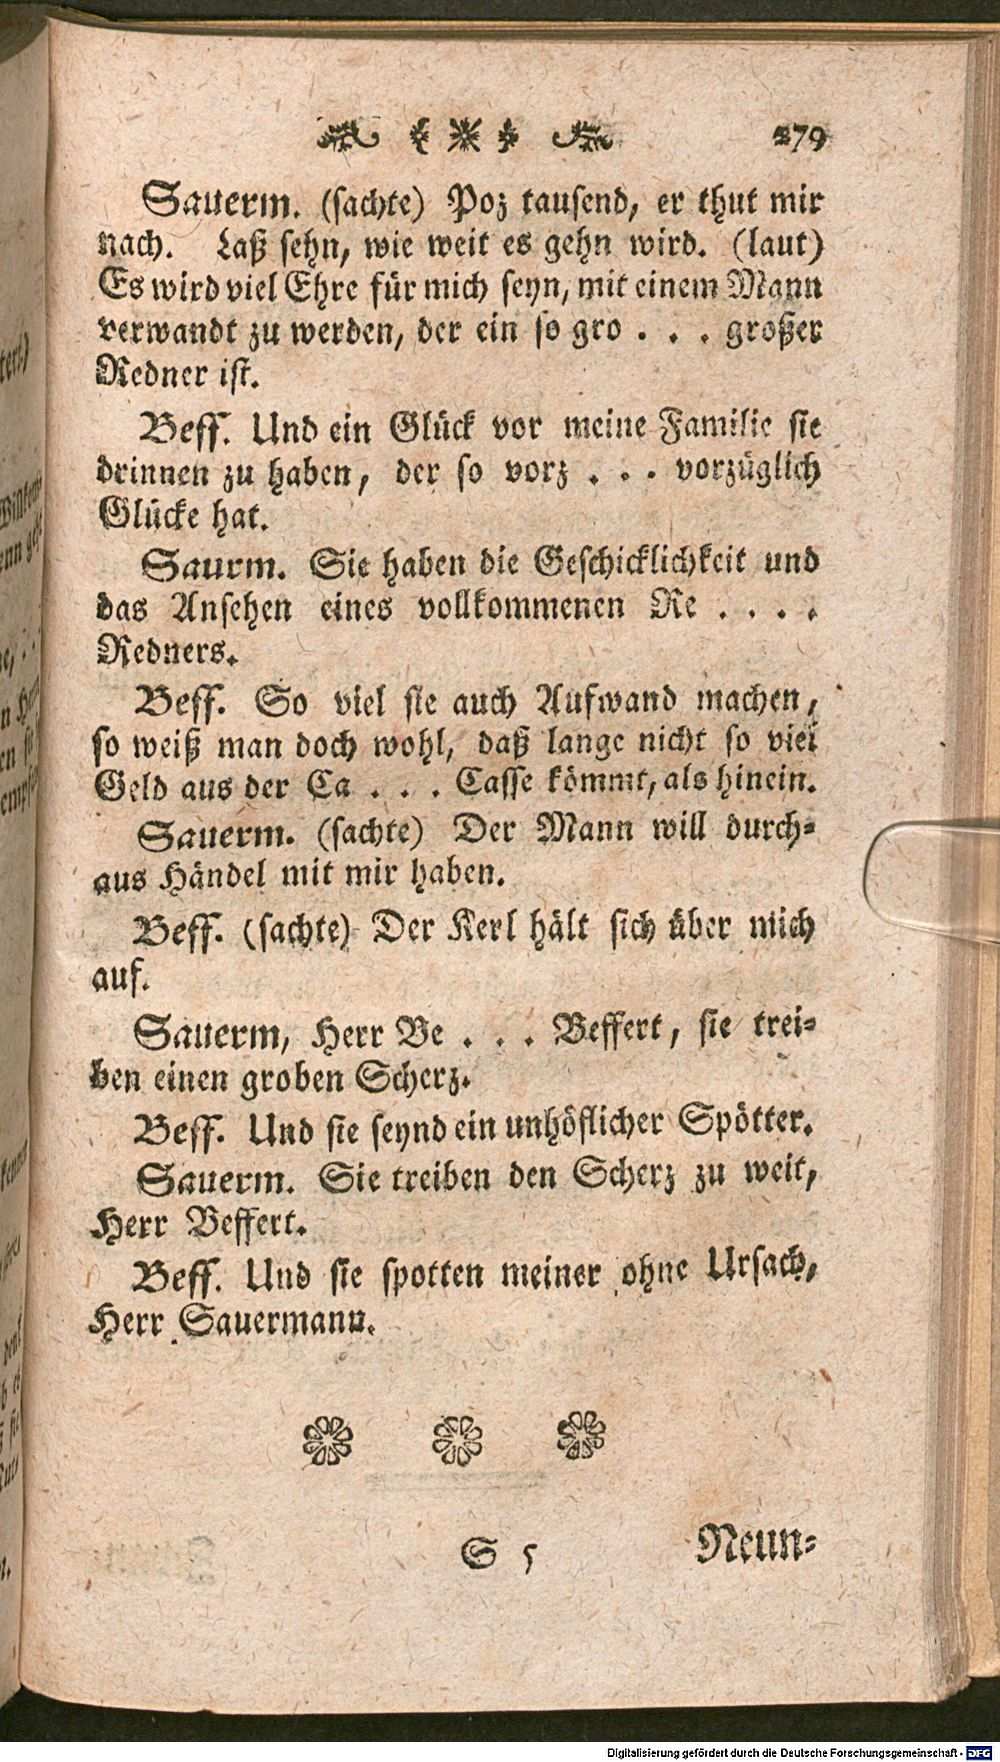 279
Sauerm. (sachte) Poz tausend, er thut mir
nach. Laß sehn, wie weit es gehn wird. (laut)
Es wird viel Ehre für mich seyn, mit einem Mann
verwandt zu werden, der ein so gro . . . großer
Redner ist.
Beff. Und ein Glück vor meine Familie sie
drinnen zu haben, der so vorz . . . vorzüglich
Glücke hat.
Saurm. Sie haben die Geschicklichkeit und
das Ansehen eines vollkommenen Re . . . .
Redners.
Beff. So viel sie auch Aufwand machen,
so weiß man doch wohl, daß lange nicht so viel
Geld aus der Ca . . . Casse kömmt, als hinein.
Sauerm. (sachte) Der Mann will durch-
aus Händel mit mir haben.
Beff. (sachte) Der Kerl hält sich über mich
auf.
Sauerm, Herr Be . . . Beffert, sie trei-
ben einen groben Scherz.
Beff. Und sie seynd ein unhöflicher Spötter.
Sauerm. Sie treiben den Scherz zu weit,
Herr Beffert.
Beff. Und sie spotten meiner ohne Ursach,
Herr Sauermann.
S 5
Neun-
Digitalisierung gefördert durch die Deutsche Forschungsgemeinschaft - DFG